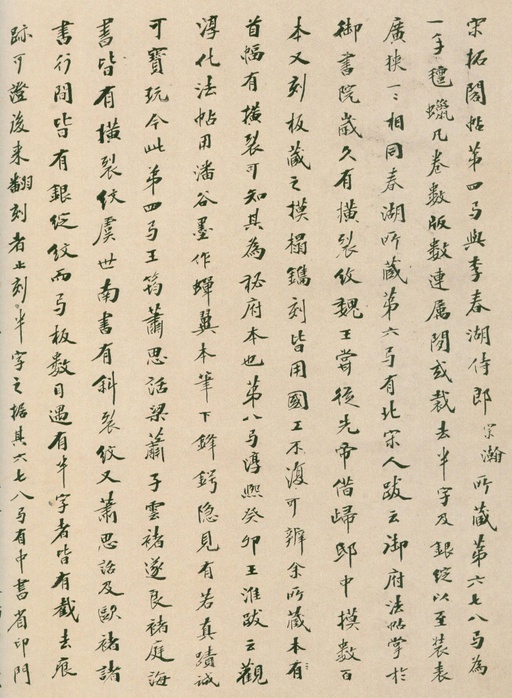 宋拓閣帖第四與李春湖侍郎宗瀚所藏第六七八為
一手氊蠟凡卷數版數連屬間或裁去半字及銀綻以至裝表
廣狹一一相同春湖所藏第六有北宋人跋云御府法帖掌於
御書院歲久有橫裂紋魏王嘗從先帝借歸邸中摸數百
本又刻板藏之摸搨鐫刻皆用國工不復可辨余所藏本有
首幅有橫裂可知其為秘府本也第八淳熙癸卯王淮跋云觀
淳化法帖用潘谷墨作蟬翼本筆下鋒鍔隱見有若真蹟誠
可寶玩今此第四王筠蕭思話梁蕭子雲褚遂良褚庭誨
書皆有橫裂紋虞世南書有斜裂紋又蕭思話及歐褚諸
書行間皆有銀綻紋而板數目遇有半字者皆有截去痕
跡可證後來翻刻者止刻半字之據其六七八有中書省印門